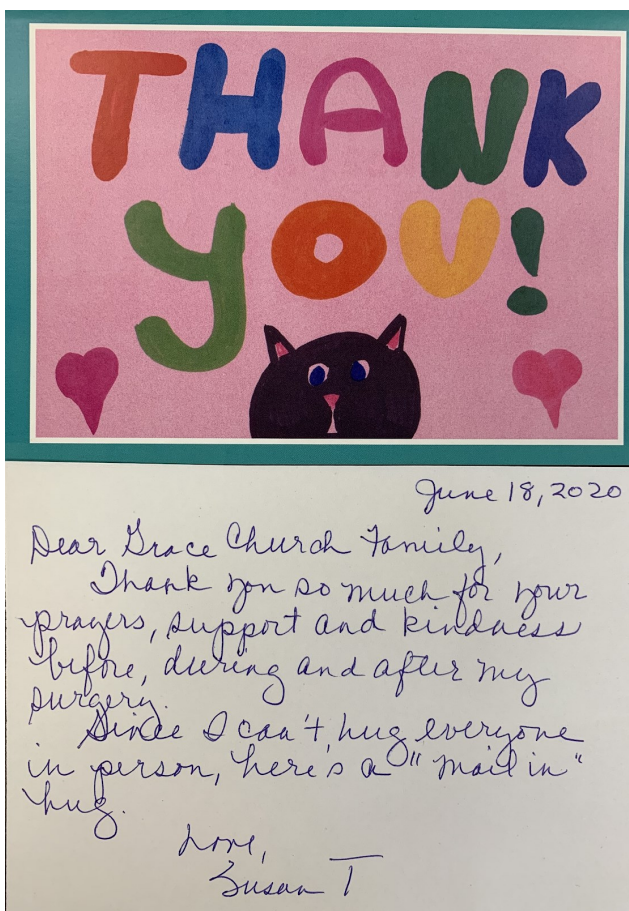 THANK
YOU!
June 18, 2020
Dear Grace Church Family,
Thank you so much for your
prayers, support and kindness
before, during and after my
surgery.
Since I can't hug everyone
in person, here's a "mail in"
hug.
Love,
Susan T